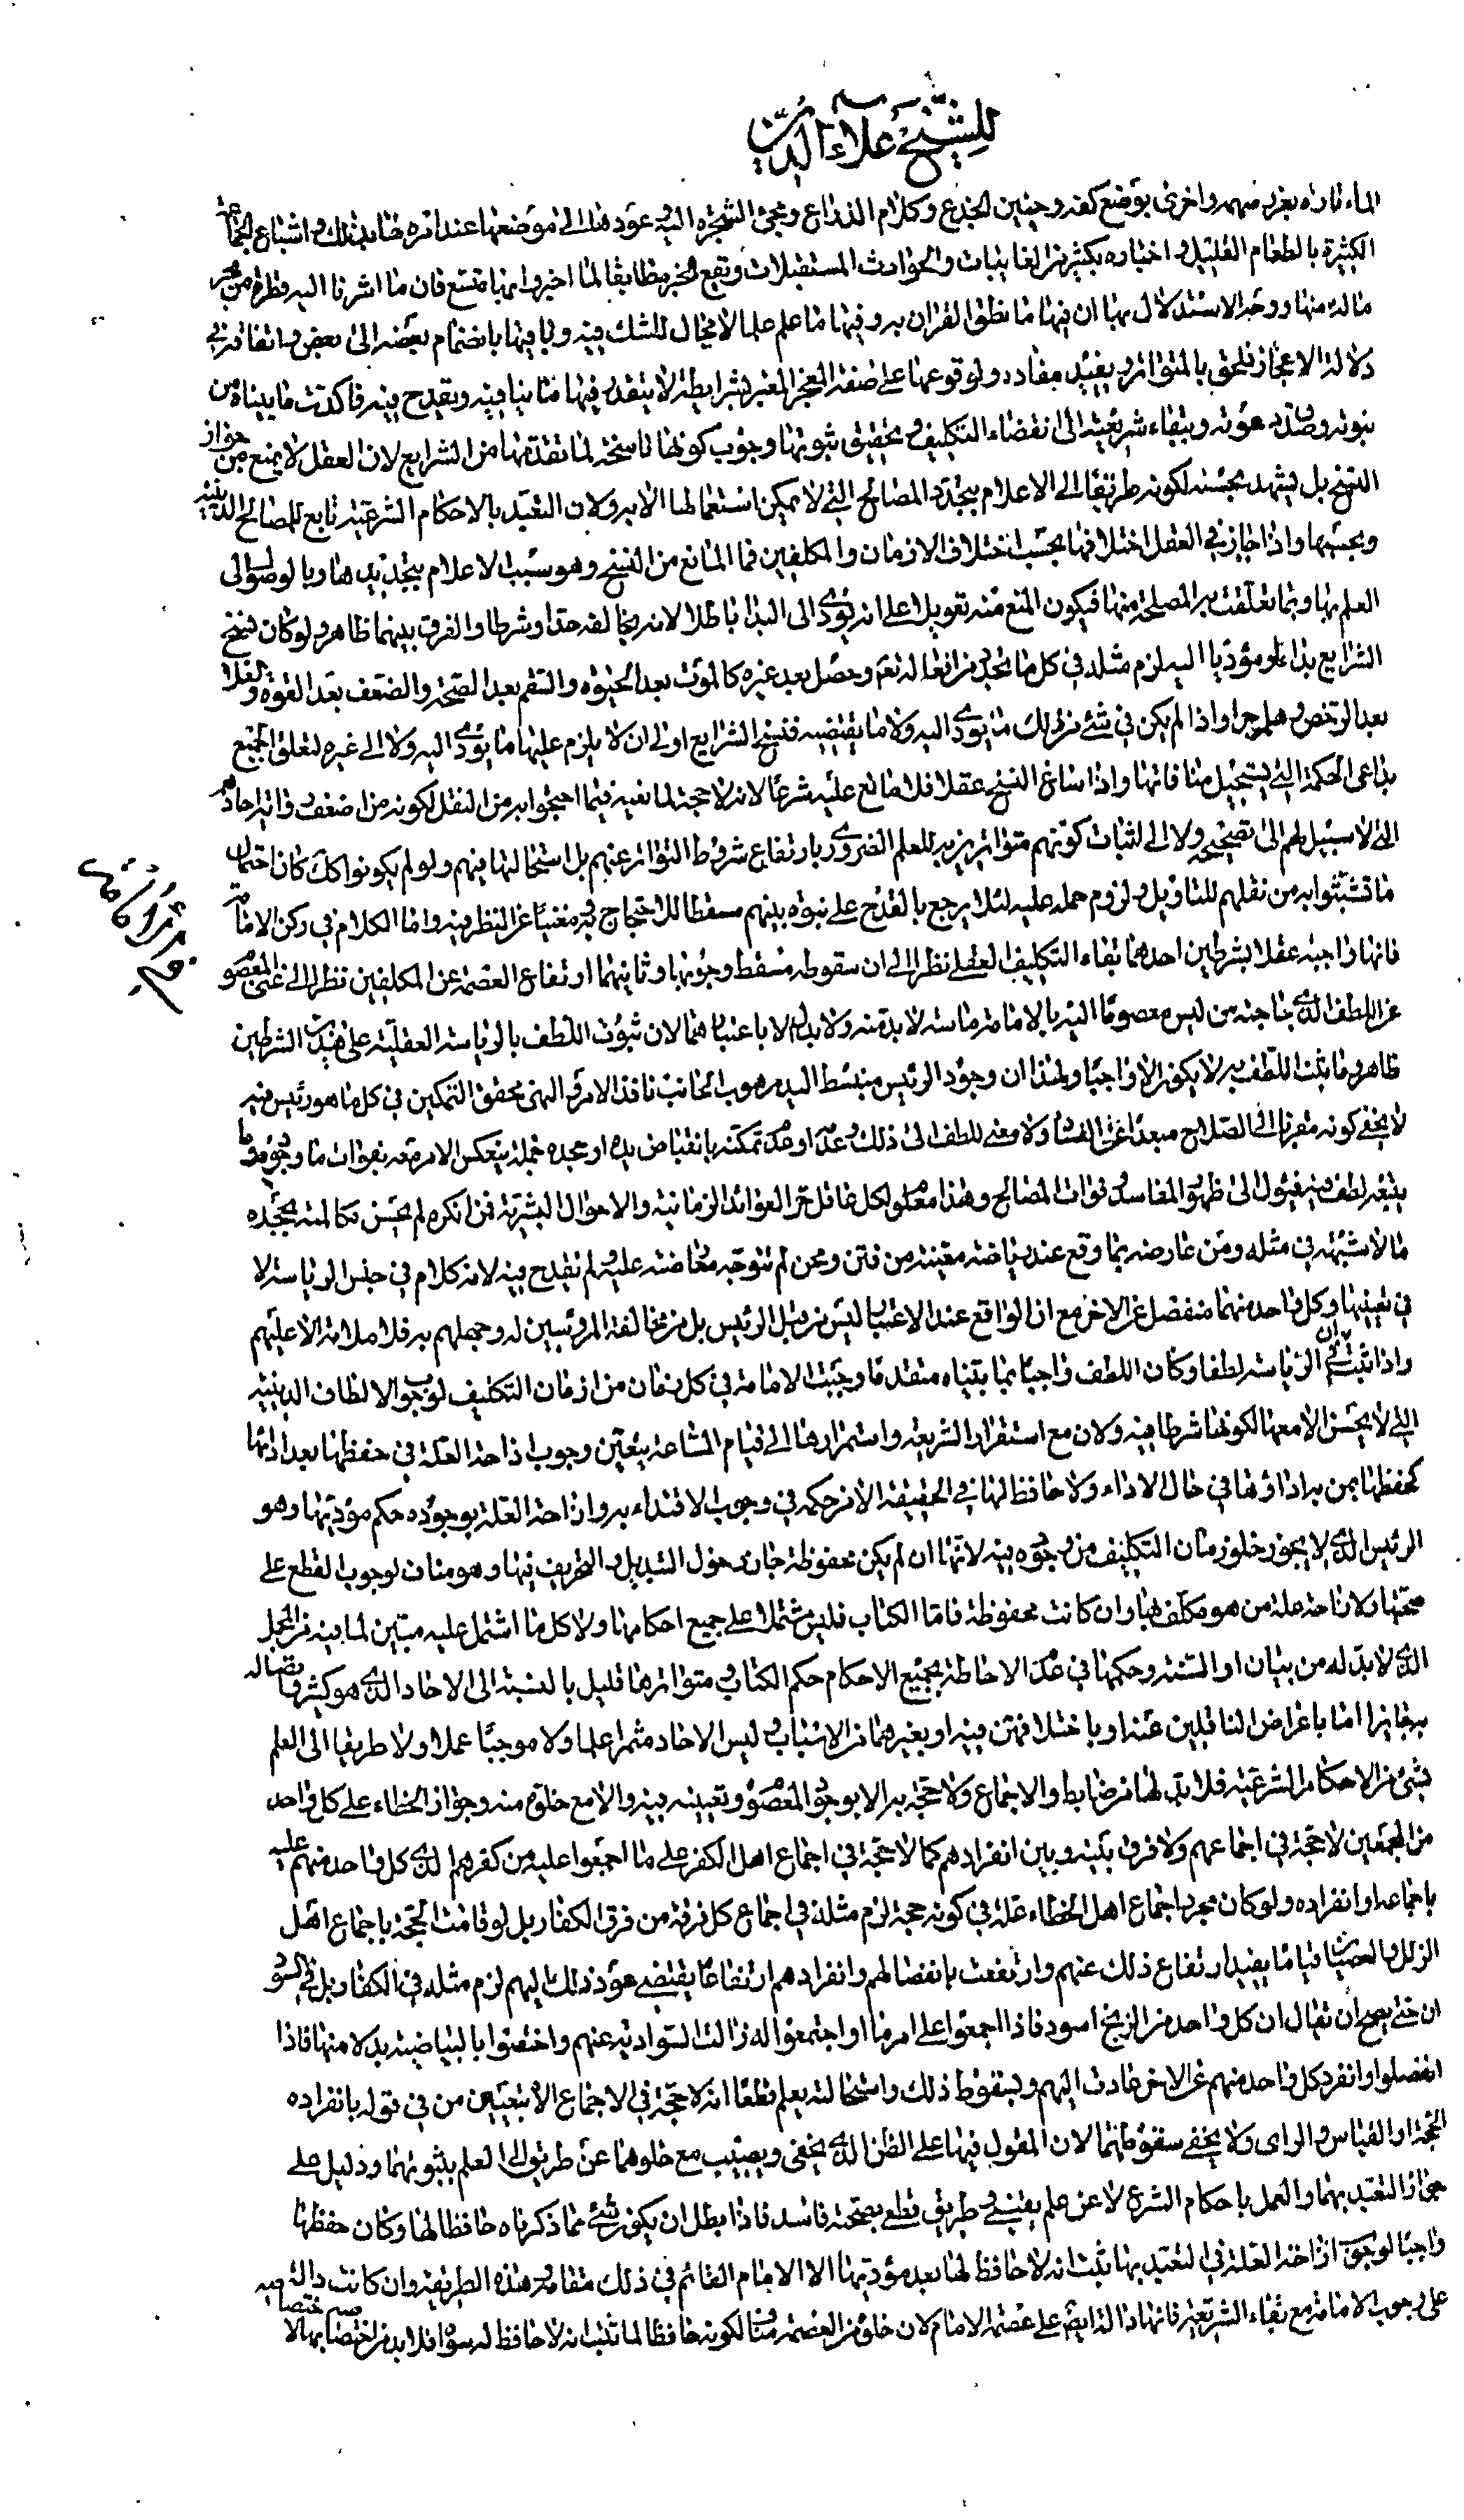 للشيخ علاء الدين
الماء تارة بغرز سهمه واخرى بوضع كفه وحنين الجذع وكلام الذراع ومجئ الشجرة اليه وعودها الى موضعها عند امره لها بذلك واشباع الجماعة
الكثيرة بالطعام القليل واخباره بكثير من الغائبات والحوادث المستقبلات ووقع المخبر مطابقا لما اخبر وامثالها متسع فان ما اشرنا اليه قطرة من بحر
ماله منها ووجه الاستدلال بها ان فيها ما نطق القران به وفيها ما علم علما لا مجال للشك فيه وباقيها بانضمام بعضه الى بعض واتفاقه في
دلالة الاعجاز يلحق بالمتواتر ويفيد مفاده ولوقوعها على صفة المعجز المعتبر بشرايطه لا يتقدر فيها ما ينافيه ويقدح فيه فاكدت ما بيناه من
نبوته وصدق دعوته وبقاء شريعته الى انقضاء التكليف وبحقيق ثبوتها وجوب كونها ناسخة لما تقدمها من الشرايع لان العقل لا يمنع من جواز
النسخ بل يشهد بحسنه لكونه طريقا الى الاعلام بتجدد المصالح التي لا يمكن استعمالها الا به ولان التعبد بالاحكام الشرعية تابع للمصالح الدينية
وبحسبها واذا جاز في العقل اختلافها بحسب اختلاف الازمان والمكلفين فما المانع من النسخ وهو سبب الاعلام بتجديدها وبالوصول الى
العلم بها وبما تعلقت به المصلحة منها فيكون المنع منه تعويلا على انه يؤدى الى البدا باطلا لانه يخالفه حقا وشرطا والفرق بينهما ظاهر ولو كان نسخ
الشرايع بداء او مؤديا اليه لزم مثله في كل ما تجدد من افعاله تعم وحصل بعد غيره كالموت بعد الحيوة والسقم بعد الصحة والضعف بعد القوة والغلا
بعد الرخص وهلم جرا واذا لم يكن في شئ من ذلك ما يؤدى اليه ولا ما يقتضيه فنسخ الشرايع اولى ان لا يلزم عليها ما يؤدى اليه ولا الى غيره لتعلق الجميع
بداعى الحكمة التي يستحيل منا فاتها واذا ساغ النسخ عقلا فلا مانع عليه شرعا لانه لا حجة لما نعيه فيما احتجوا به من النقل لكونه من اضعف واتر احادهم
التي لا سبيل لهم الى تصحيحه ولا الى اثبات كونهم متواترين به للعلم الضرورى بارتفاع شروط التواتر عنهم بل استحالتها فيهم ولو لم يكونوا كك كان احتمال
ما تشبثوا به من نقلهم للتاويل ولزوم حمله عليه لئلا يرجع بالقدح على نبوة نبيهم مسقطا للاحتجاج به مغنيا عن النظر فيه واما الكلام في ركن الامامة
فانها واجبة عقلا بشرطين احدهما بقاء التكليف العقلى نظرا الى ان سقوطه مسقط وجوبها وثانيهما ارتفاع العصمة عن المكلفين نظرا الى غنى المعصوم
عن اللطف الذى حاجة من ليس معصوما اليه بالامامة ماسة لا بد منه ولا بدل الا باعتبارهما لان ثبوت اللطف بالرياسة العقلية على هذين الشرطين
ظاهر وما يثبت اللطف به لا يكون الا واجبا ولهذا ان وجود الرئيس منبسط اليد مرهوب الجانب نافذ الامر والنهى محقق التمكين في كل ما هو رئيس فيه
لا يخفى كونه مقربا الى الصلاح مبعدا عن الفساد ولا معنى للطف الى ذلك وعدمه او عدم تمكنه بانقباض يده او جحده جملة ينعكس الامر معه بفوات ما وجوده
يثبته لطف فيه فيئول الى ظهور المفاسد وفوات المصالح وهذا معلوم لكل عاقل خبر العوائد الزمانية والاحوال البشرية فمن انكره لم يحسن مكالمته لجحده
ما لا شبهة في مثله ومن عارضه بما وقع عند رياضة معينة من فتن ومحن لم تتوجه معارضته عليه ولم تقدح فيه لانه كلام في جنس الرياسة لا
في تعيينها وكل واحد منهما منفصل عن الاخر مع ان الواقع عند الاعتبار ليس من قبل الرئيس بل من مخالفة المرؤسين له وجهلهم به فلا ملامة الا عليهم
واذا ثبت كون الرياسة لطفا وكان اللطف واجبا بما بيناه متقدما وجبت الامامة في كل زمان من ازمان التكليف لوجوب الالطاف الدينية
التي لا يحسن الا معها لكونها شرطا فيه ولان مع استقرار الشريعة واستمرارها الى قيام الساعة يتعين وجوب ازاحة العلة في حفظها بعد ادائها
كحفظها بمن به اداؤها في حال الاداء ولا حافظ لها في الحقيقة الا من حكمه في وجوب الاقتداء به وازاحة العلة بوجوده حكم مؤديها وهو
الرئيس الذى لا يجوز خلو زمان التكليف من وجوده فيه لانها ان لم يكن محفوظة جاز دخول التبديل والتحريف فيها وهو مناف لوجوب القطع على
صحتها ولازاحة علة من هو مكلف بها وان كانت محفوظة فاما الكتاب فليس مشتملا على جميع احكامها ولا كل ما اشتمل عليه مبين لما فيه من المجمل
الذى لا بد له من بيان او السنة وحكمها في عدم الاحاطة بجميع الاحكام حكم الكتاب ومتواترها قليل بالنسبة الى الاحاد الذى هو كثير
اما باعراض الناقلين عنه او باختلافهم فيه او بغيرهما من الاسباب وليس الاحاد مثمرا علما ولا موجبا عملا ولا طريقا الى العلم
بشئ من الاحكام الشرعية فلا بد لها من ضابط والاجماع ولا حجة به الا بوجود المعصوم وتعيينه فيه والا مع خلوه منه وجواز الخطاء على كل واحد
من المجمعين لا حجة في اجماعهم ولا فرق بينه وبين انفرادهم كما لا حجة في اجماع اهل الكفر على ما اجمعوا عليه من كفرهم الذى كل واحد منهم عليه
باجماعه او انفراده ولو كان مجرد اجماع اهل الخطاء علة في كونه حجة لزم مثله في اجماع كل فرقة من فرق الكفار بل لو قامت الحجة باجماع اهل
الزلل والعصيان قياما يفيد ارتفاع ذلك عنهم وارتفعت بانفصالهم وانفرادهم ارتفاعا يقتضى عود ذلك اليهم لزم مثله في الكفار بل في السود
ان حتى يصح ان يقال ان كل واحد من الزنج اسود فاذا اجمعوا على امر ما او اجتمعوا له زالت السوادية عنهم واختصوا بالبياضية بدلا منها فاذا
انفصلوا وانفرد كل واحد منهم عن الاخر عادت اليهم وبسقوط ذلك واستحالته يعلم قطعا انه لا حجة في الاجماع الا بتعيين من في قوله بانفراده
الحجة او القياس والراى ولا يخفى سقوطهما لان المعول فيها على الظن الذى يخطى ويصيب مع خلوهما عن طريق الى العلم بثبوتهما ودليل على
جواز التعبد بهما والعمل باحكام الشرع لا عن علم يقينى وطريق قطع بصحته فاسد فاذا بطل ان يكون شئ مما ذكرناه حافظا لها وكان حفظها
واجبا لوجوب ازاحة العلة في التعبد بها ثبت انه لا حافظ لها بعد مؤديها الا الامام القائم في ذلك مقامه وهذه الطريقة وان كانت دالة
على وجوب الامامة مع بقاء الشريعة فانها دالة ايضا على عصمة الامام لان خلوه من العصمة مناف لكونه حافظا لما ثبت انه لا حافظ له سواه فلا بد من اختصاصه بها لا